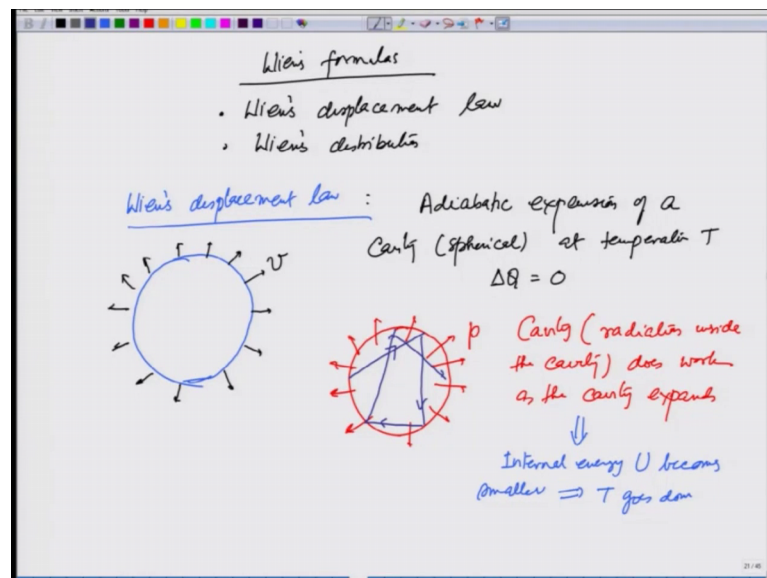 Wien's formulas
• Wien's displacement law
• Wien's distribution
Wien's displacement law : Adiabatic expansion of a
cavity (spherical) at temperature T
ΔQ = 0
v
p
Cavity (radiation inside
the cavity) does work
as the cavity expands
⇓
Internal energy U becomes
smaller ⇒ T goes down
21 / 45